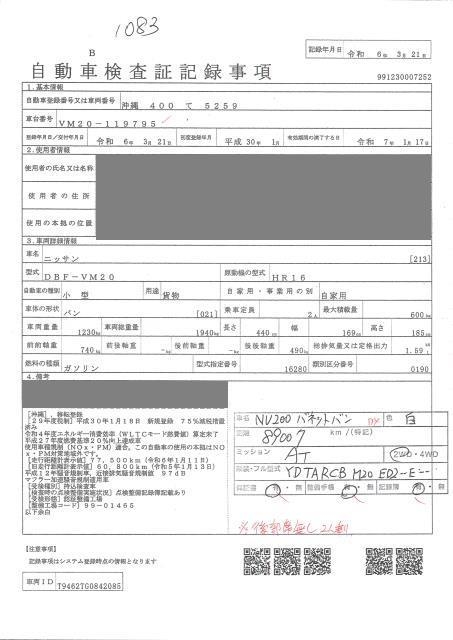 1083
B
記録年月日 令和 6年 3月 21日
自動車検査証記録事項
991230007252
1.基本情報
自動車登録番号又は車両番号 沖縄 400 て 5259
車台番号 VM20-119795
登録年月日/交付年月日 令和 6年 3月 21日 初度登録年月 平成 30年 1月 有効期間の満了する日 令和 7年 1月 17日
2.使用者情報
使用者の氏名又は名称
使用者の住所
使用の本拠の位置
3.車両詳細情報
車名 ニッサン [213]
型式 DBF-VM20 原動機の型式 HR16
自動車の種別 小型 用途 貨物 自家用・事業用の別 自家用
車体の形状 バン [021] 乗車定員 2人 最大積載量 600kg
車両重量 1230kg 車両総重量 1940kg 長さ 440cm 幅 169cm 高さ 185cm
前前軸重 740kg 前後軸重 -kg 後前軸重 -kg 後後軸重 490kg 総排気量又は定格出力 1.59L
燃料の種類 ガソリン 型式指定番号 16280 類別区分番号 0190
4.備考
[沖縄],移転登録
[29年度税制]平成30年1月18日 新規登録 75%減税措置済み
令和4年度エネルギー消費効率(WLTCモード燃費値)算定未了
平成27年度燃費基準20%向上達成車
使用車種規制(NOx・PM)適合,この自動車の使用の本拠はNOx・PM対策地域外です。
[走行距離計表示値]77,500km(令和6年1月11日)
[旧走行距離計表示値]60,800km(令和5年1月13日)
平成12年騒音規制車,近接排気騒音規制値 97dB
マフラー加速騒音規制適用車
[受検種別]持込検査車
[検査時の点検整備実施状況]点検整備記録簿記載あり
[受検形態]認証整備工場
[整備工場コード]99-01465
以下余白
車名 NV200 バネットバン DX 色 白
距離 89007 km/(特記)
ミッション AT 2WD・4WD
類装・フル型式 YDTARCB M20 ED2--E---
保証書 有・無 整備手帳 有・無 記録簿 有・無
※後部席無し 2人乗り
[注意事項]
記録事項はシステム登録時点の情報となります
車両ID T9462TG0842085